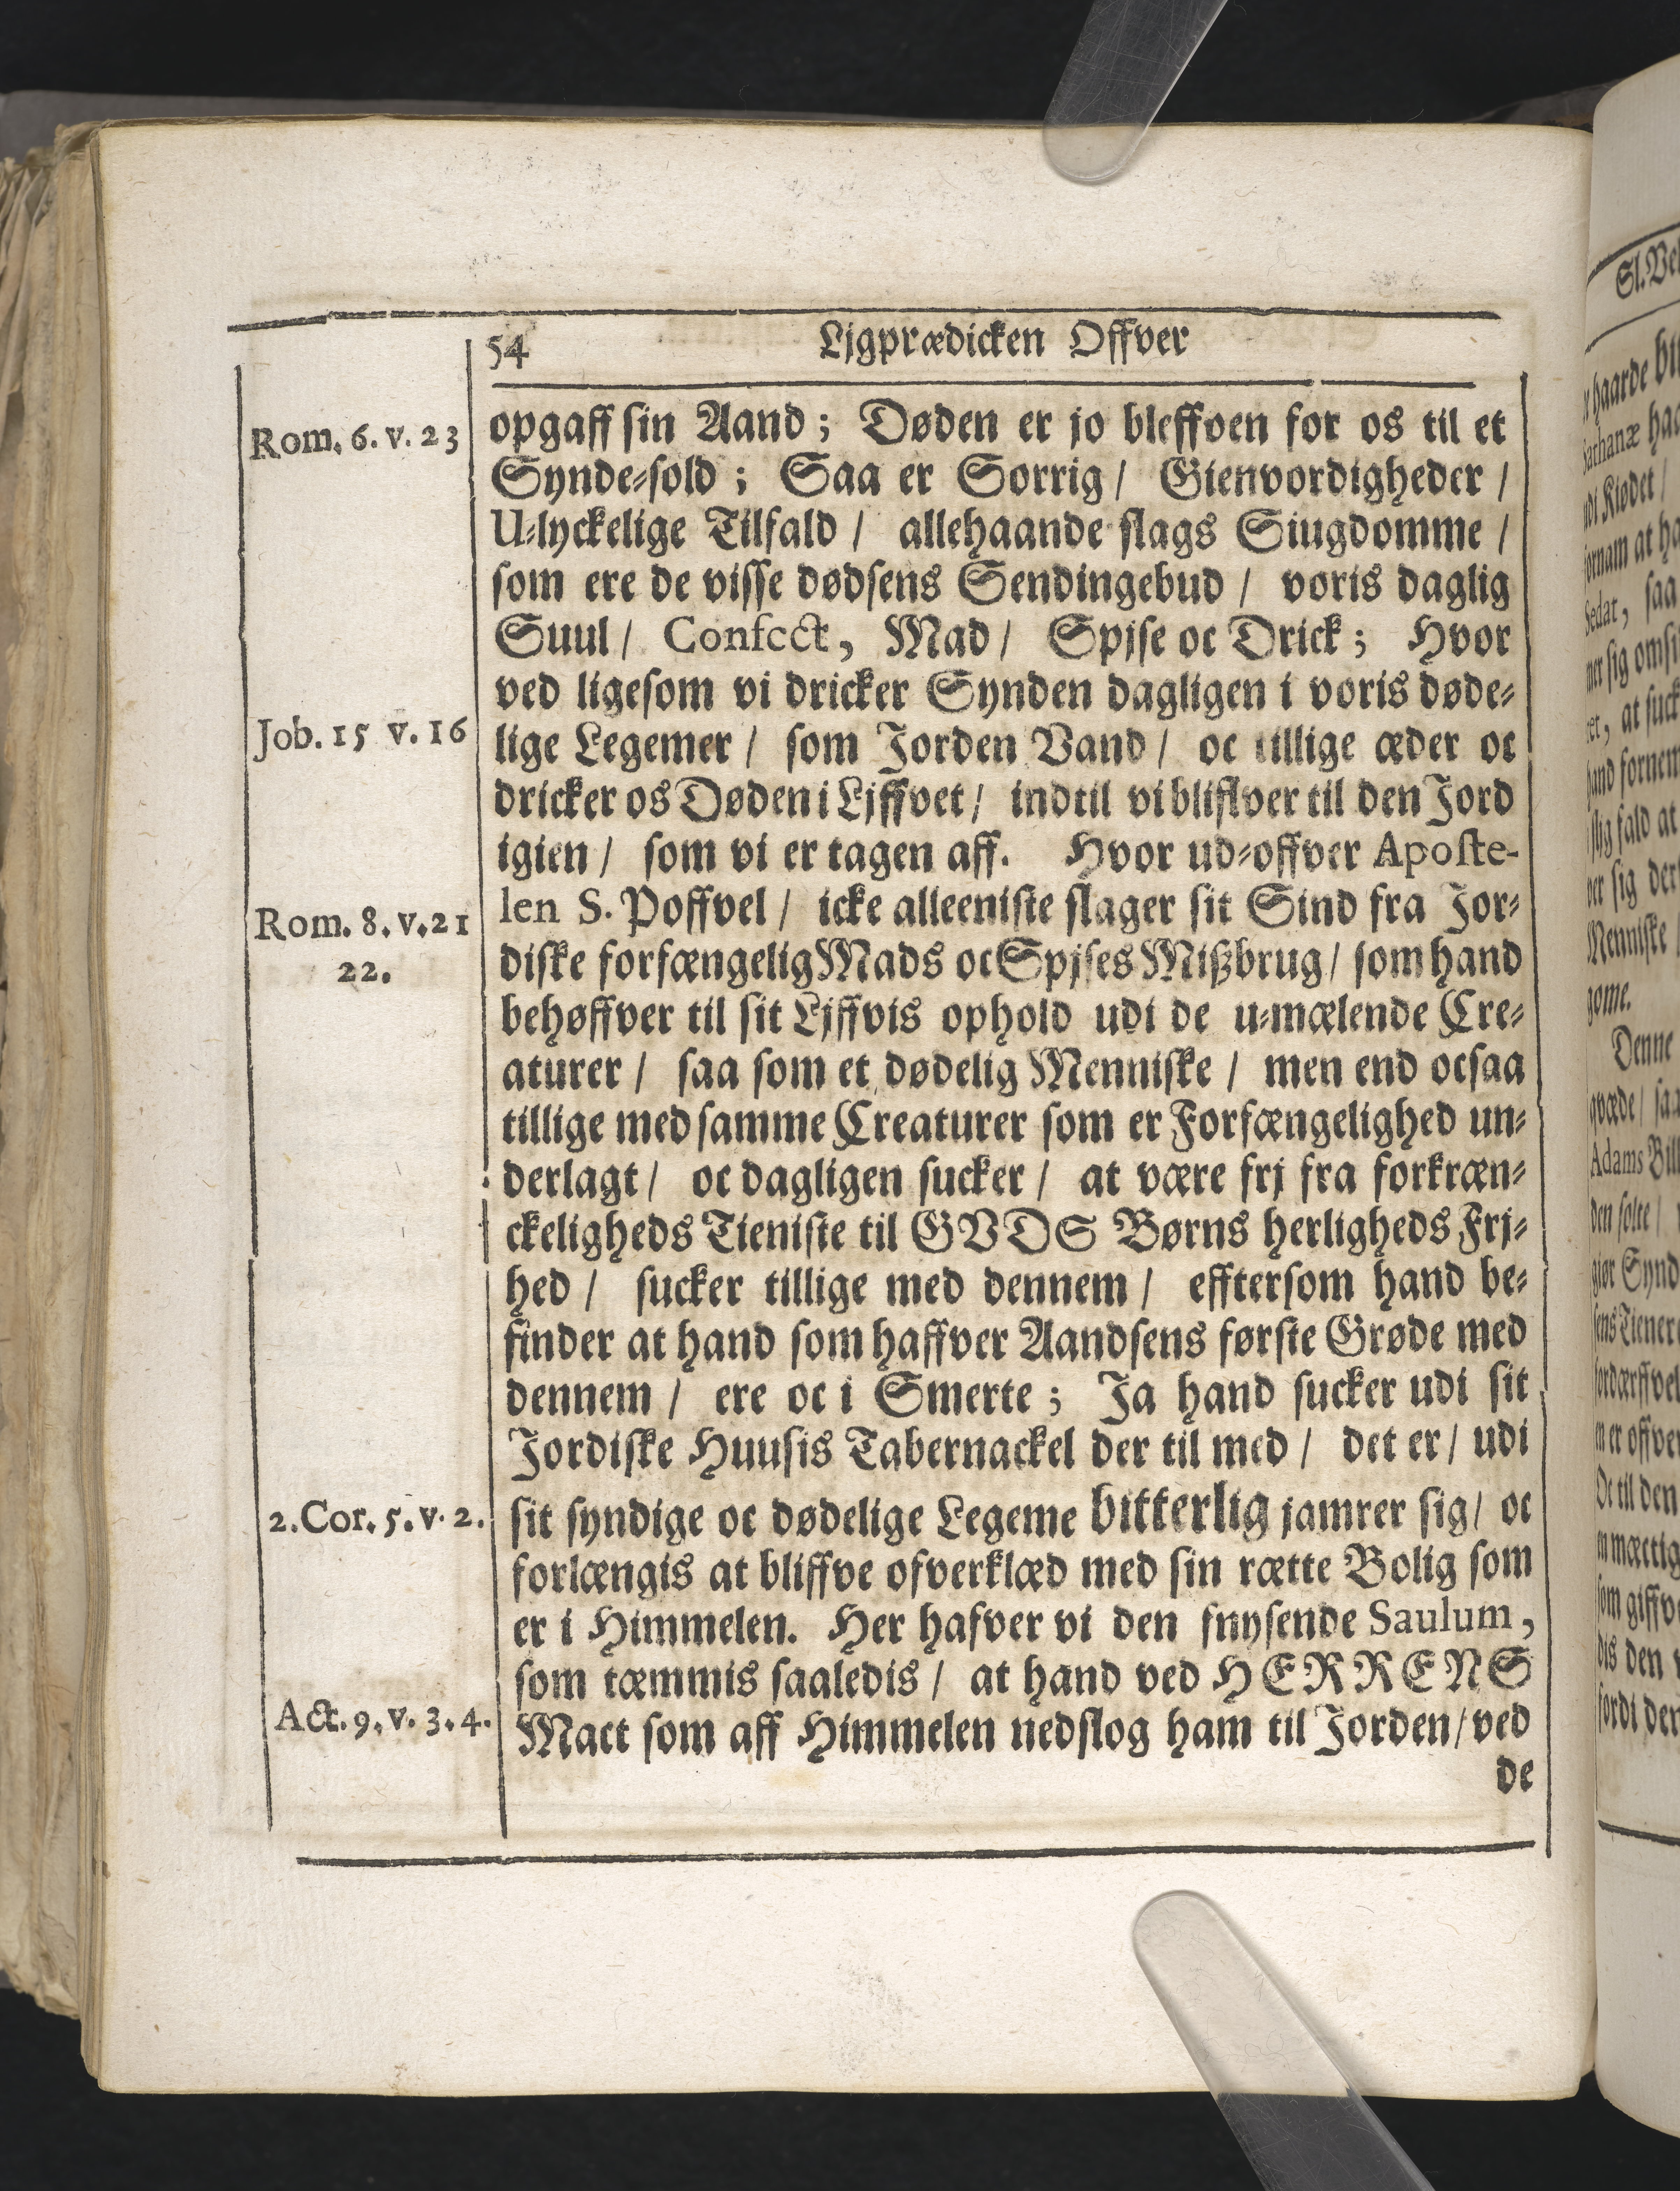 54 Ljgprædicken Offver
Rom. 6. v. 23
opgaff sin Aand; Døden er jo bleffven for os til et
Synde-sold; Saa er Sorrig/ Gienvordigheder/
U-lyckelige Tilfald/ allehaande slags Siugdomme/
som ere de visse dødsens Sendingebud/ voris daglig
Suul/ Confect, Mad/ Spjse oc Drick; Hvor
ved ligesom vi dricker Synden dagligen i voris døde-
Job. 15 v. 16
lige Legemer/ som Jorden Vand/ oc tillige æder oc
dricker os Døden i Ljffvet/ indtil vi bliffver til den Jord
igien/ som vi er tagen aff. Hvor ud-offver Aposte-
Rom. 8. v. 21
22.
len S. Poffvel/ icke alleeniste slager sit Sind fra Jor-
diske forfængelig Mads oc Spjses Mißbrug/ som hand
behøffver til sit Ljffvis ophold udi de u-mælende Cre-
aturer/ saa som et dødelig Menniske/ men end ocsaa
tillige med samme Creaturer som er Forfængelighed un-
derlagt/ oc dagligen sucker/ at være frj fra forkræn-
ckeligheds Tieniste til GVDS Børns herligheds Frj-
hed/ sucker tillige med dennem/ efftersom hand be-
finder at hand som haffver Aandsens første Grøde med
dennem/ ere oc i Smerte; Ja hand sucker udi sit
Jordiske Huusis Tabernackel der til med/ det er/ udi
2. Cor. 5. v. 2.
sit syndige oc dødelige Legeme bitterlig jamrer sig/ oc
forlængis at bliffve ofverklæd med sin rætte Bolig som
er i Himmelen. Her hafver vi den snysende Saulum,
som tæmmis saaledis/ at hand ved HERRENS
Act. 9. v. 3. 4.
Mact som aff Himmelen nedslog ham til Jorden/ ved
de